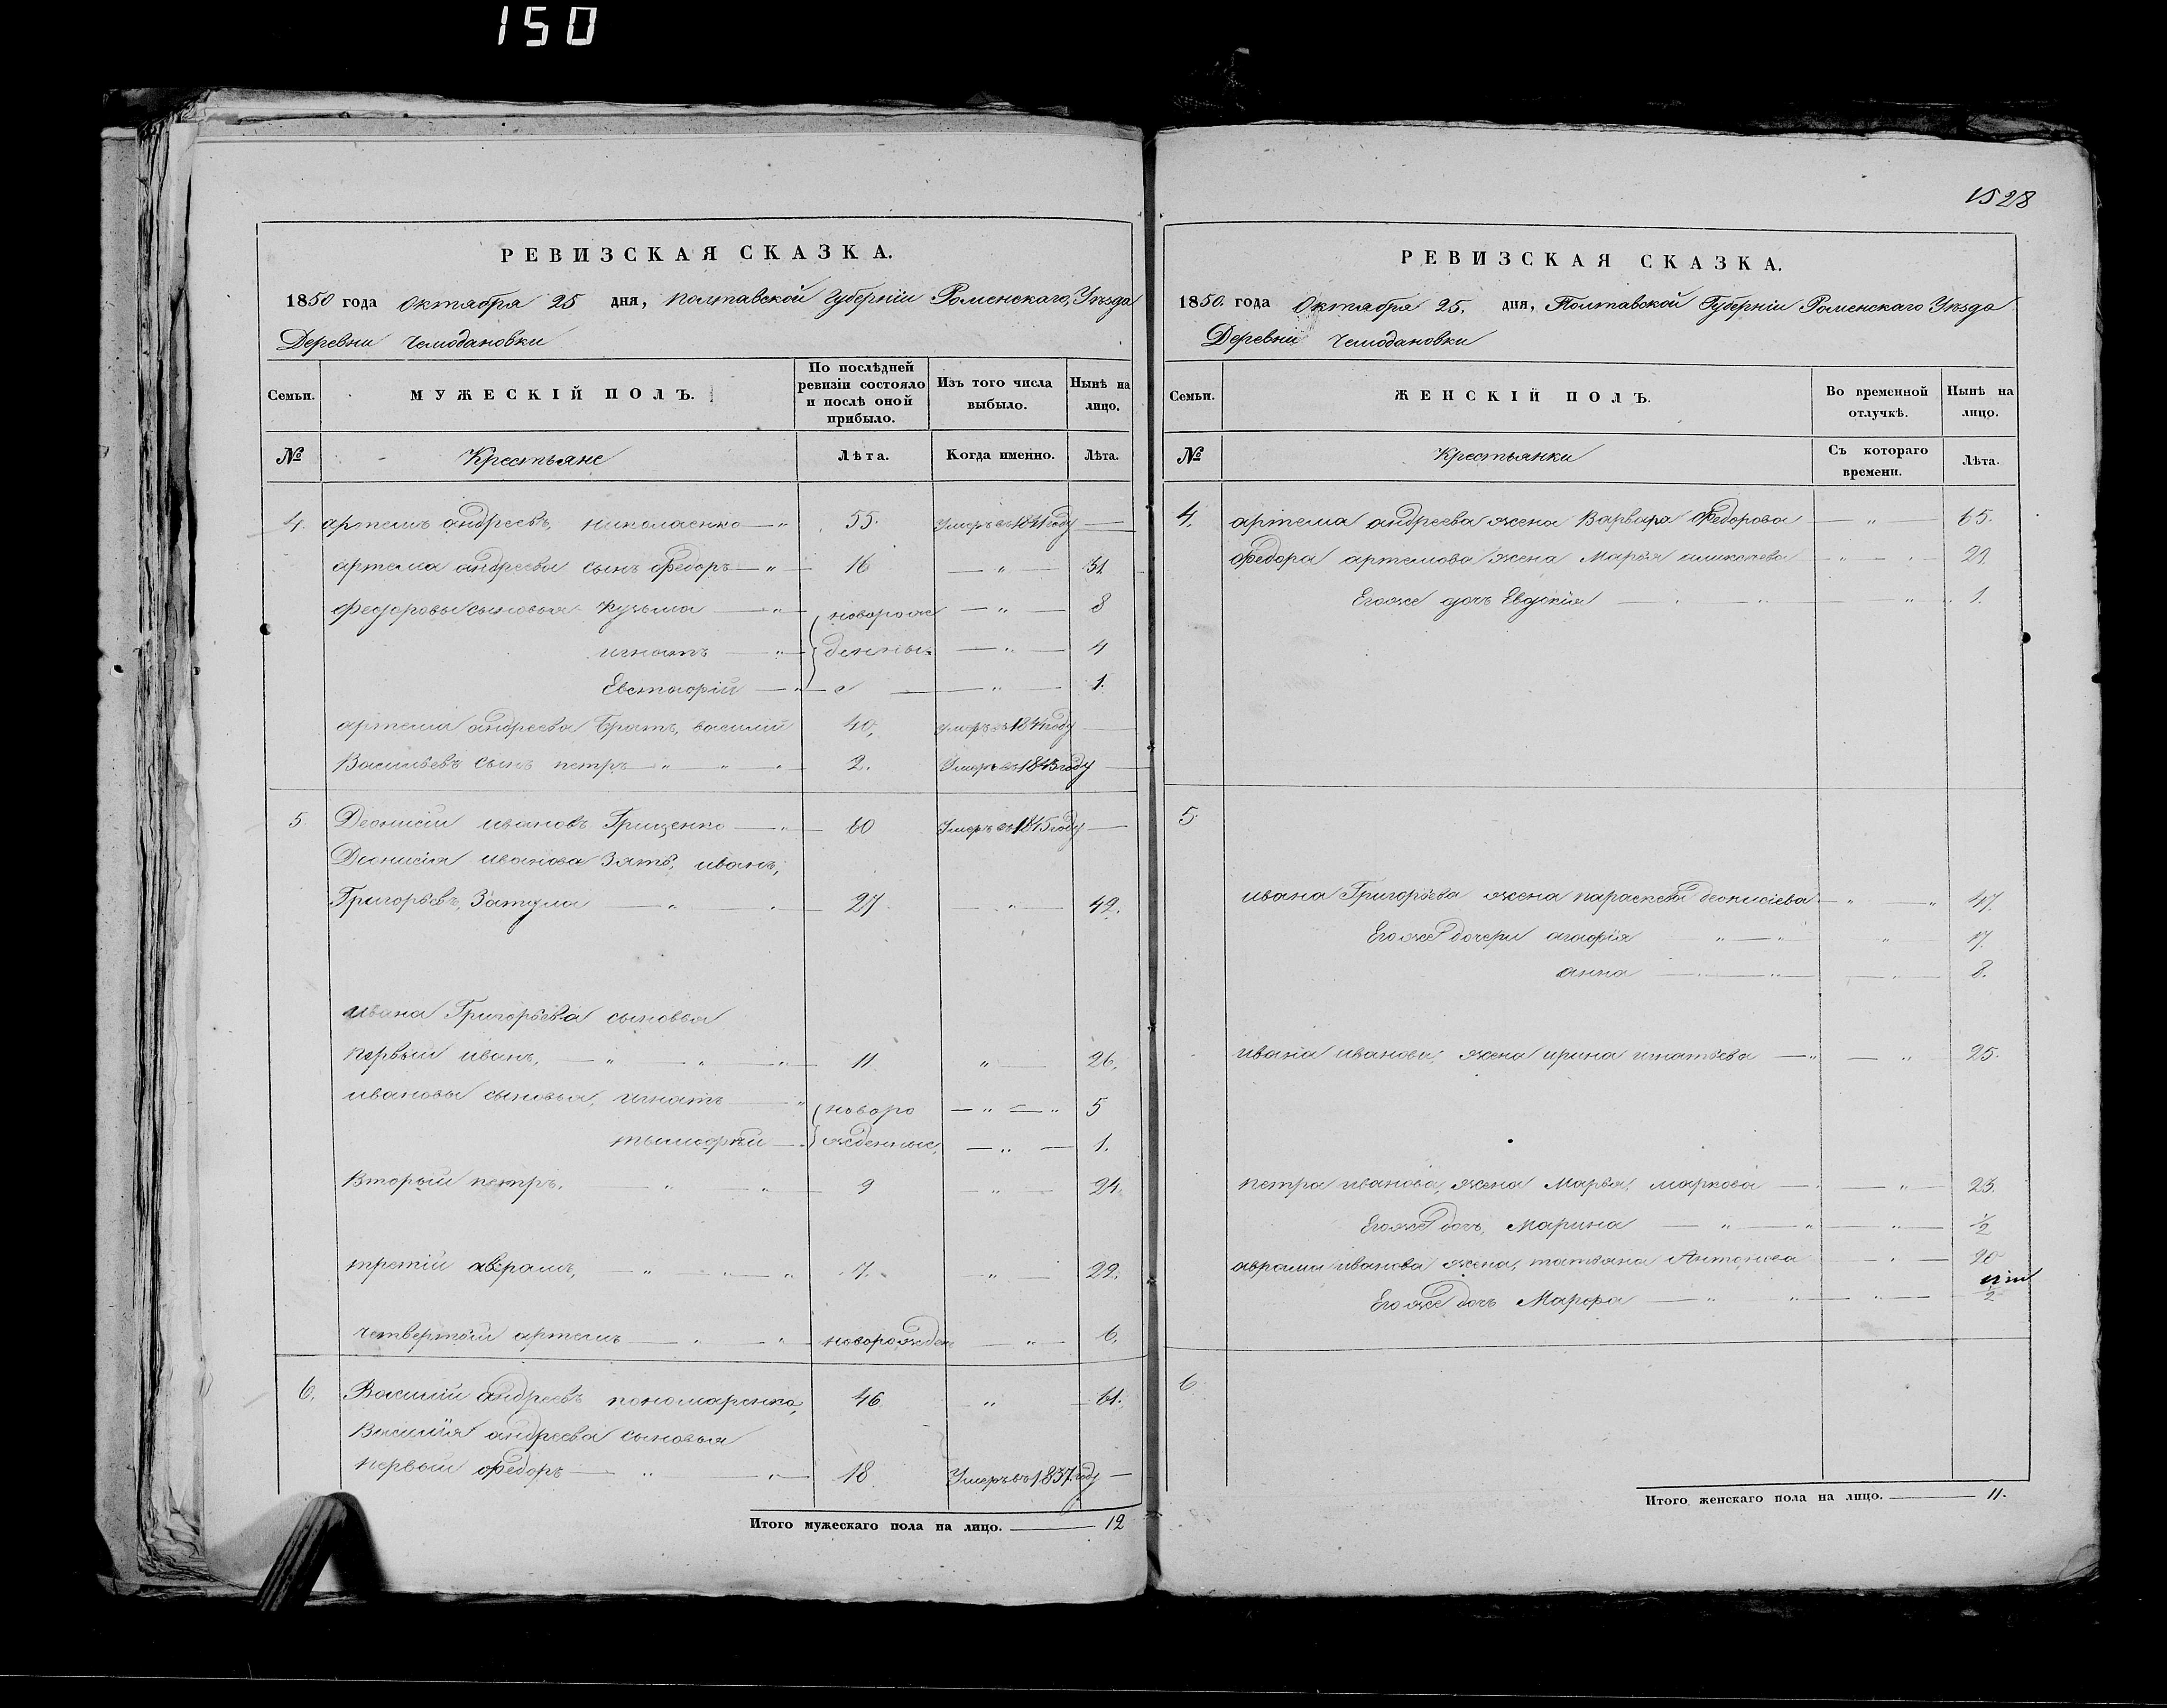 150
РЕВИЗСКАЯ СКАЗКА.
1850 года Октября 25 дня, Полтавской Губерніи Роменскаго Уѣзда
Деревни Чемодановки
Семьи. МУЖЕСКІЙ ПОЛЪ. По послѣдней ревизіи состояло и послѣ оной прибыло. Изъ того числа выбыло. Нынѣ на лицо.
№ Крестьяне Лѣта. Когда именно. Лѣта.
4. артемъ андреевъ николаенко — " 55. Умеръ въ 1841 году —
артема андреева сынъ Федоръ — " — 16 — " — 31
Федоровы сыновья Кузьма — " — новорож — " — 8
игнатъ — " — денны — " — 4
Евстафій — " — е — " — 1.
артема андреева Братъ, василий 40, умеръ въ 1844 году —
Васильевъ сынъ петръ — " — " — " — 2. Умеръ въ 1843 году —
5 Деонисии ивановъ Грищенко — " — 60 Умеръ въ 1845 году —
Дионисія иванова Зять, иванъ,
Григорьевъ, Затула — " — " — 27 — " — 42.
ивана Григорьева сыновья
первый иванъ, — " — " — " — 11 " — 26,
ивановы сыновья, игнатъ — " новоро — " — " 5
тымофѣй — " жденные, — " — 1.
Второй петръ, — " — " — 9 — " — 24.
третій аврамъ, — " — " — " 7. — " — 22.
четвертый артемъ — " — " — новорожден — " — 6.
6. Василий андреевъ пономаренко, 46 " — 61.
Василия андреева сыновья
первый Федоръ — " — " — 18 Умеръ въ 1837 году —
Итого мужескаго пола на лицо. — 12
1528
РЕВИЗСКАЯ СКАЗКА.
1850. года Октября 25. дня, Полтавской Губерніи Роменскаго Уѣзда
Деревни Чемодановки
Семьи. ЖЕНСКІЙ ПОЛЪ. Во временной отлучкѣ. Нынѣ на лицо.
№ Крестьянки Съ котораго времени. Лѣта.
4. артема андреева жена Варвара Федорова — " — 65.
Федора артемова жена Марья — " — " 29.
Егоже дочь Евдокія — " — " — " 1.
5.
ивана Григорьева жена параскева деонисіева — " — " 47.
Егоже дочери агафія " — " " 17.
анна — " — " — " — 8.
ивана иванова, жена ирина игнатьева — " — " 25.
петра иванова, жена Марья, маркова — " — " — 23.
Егоже дочь, Марина — " — " — " — 1/2
аврама иванова жена, татьяна Антонова — " — 20
Егоже дочь Марфа — " — " — " — 1/2
6
Итого женскаго пола на лицо. — 11.